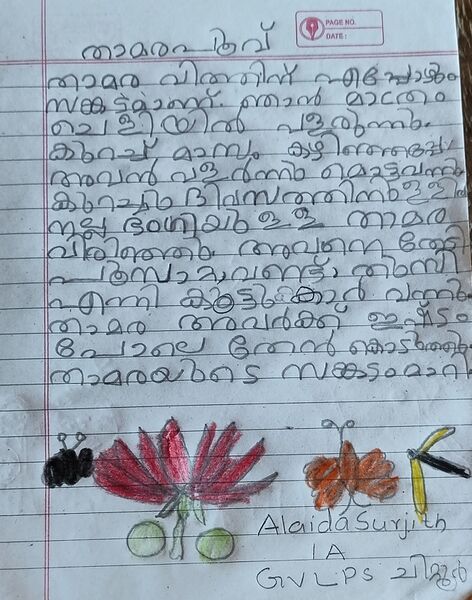 PAGE NO.
DATE:
താമരപൂവ്
താമര വിത്തിന് എപ്പോഴും
സങ്കടമാണ്. ഞാൻ മാത്രം
ചെളിയിൽ വളരുന്നു.
കുറച്ച് മാസം കഴിഞ്ഞപ്പോ
അവൻ വളർന്നു മൊട്ടുവന്നു
കുറച്ചു ദിവസത്തിനുള്ളിൽ
നല്ല ഭംഗിയുള്ള താമര
വിരിഞ്ഞു. അവനെ തേടി
പൂമ്പാറ്റ,വണ്ട്, തുമ്പി
എന്നീ കൂട്ടുകാർ വന്നു
താമര അവർക്ക് ഇഷ്ടം
പോലെ തേൻ കൊടുത്തു
താമരയുടെ സങ്കടംമാറി
Alaida Surjith
1A
GVLPS ചിറ്റൂർ